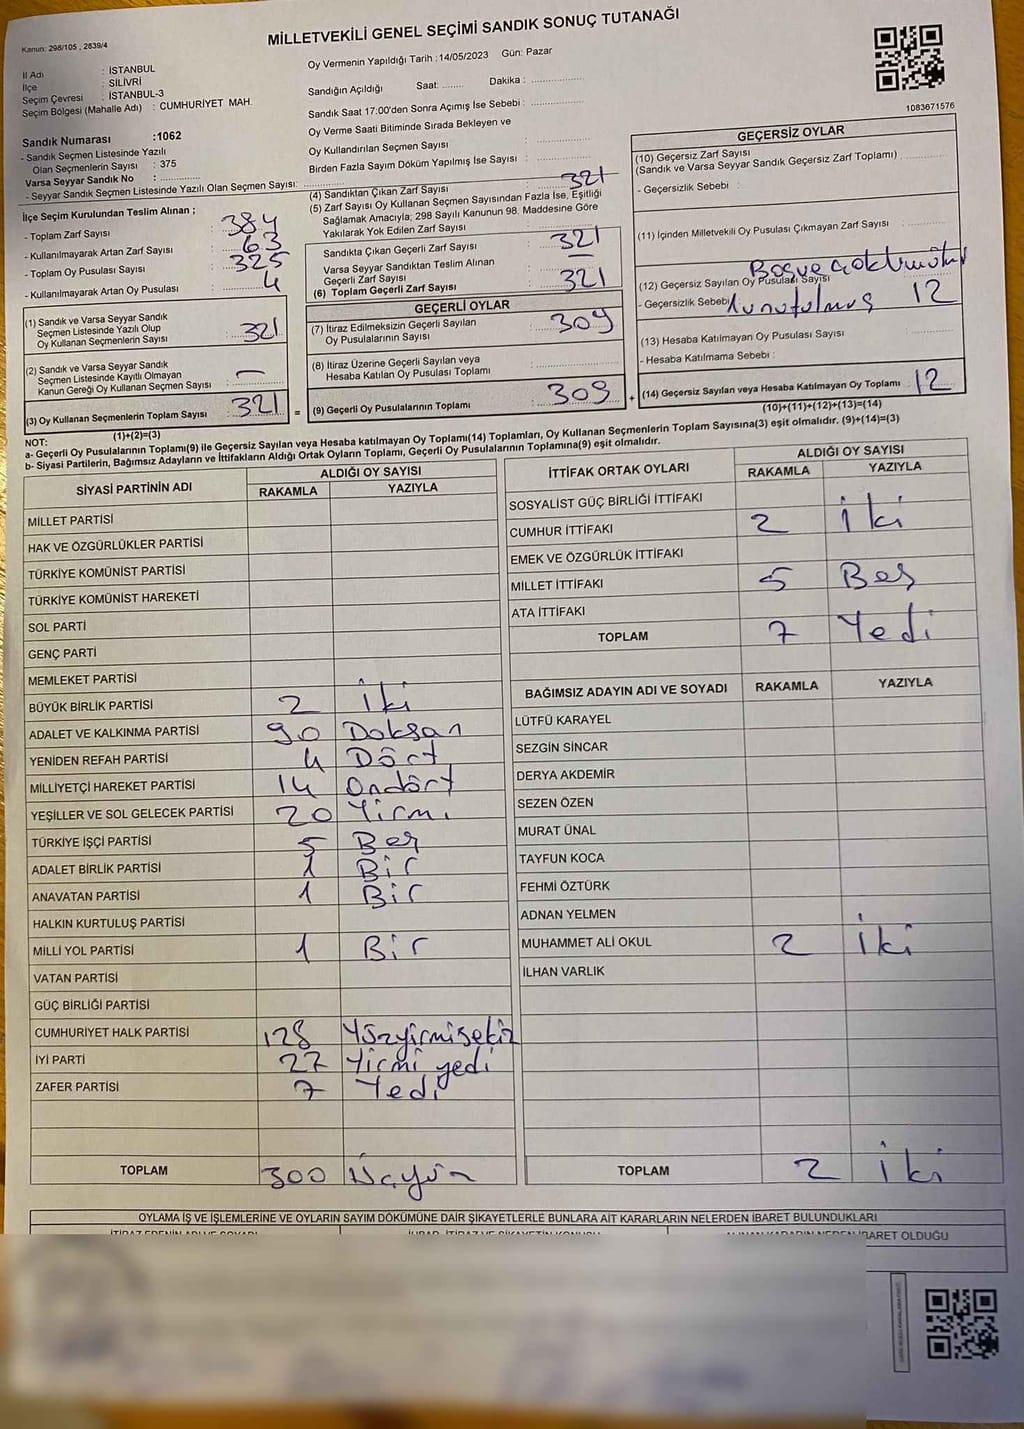 Kanun: 298/105 , 2839/4
MİLLETVEKİLİ GENEL SEÇİMİ SANDIK SONUÇ TUTANAĞI
İl Adı : İSTANBUL
İlçe : SİLİVRİ
Seçim Çevresi : İSTANBUL-3
Seçim Bölgesi (Mahalle Adı) : CUMHURİYET MAH.
Sandık Numarası :1062
- Sandık Seçmen Listesinde Yazılı
Olan Seçmenlerin Sayısı : 375
Varsa Seyyar Sandık No :
- Seyyar Sandık Seçmen Listesinde Yazılı Olan Seçmen Sayısı:
Oy Vermenin Yapıldığı Tarih :14/05/2023 Gün: Pazar
Sandığın Açıldığı Saat: Dakika :
Sandık Saat 17:00'den Sonra Açımış İse Sebebi :
Oy Verme Saati Bitiminde Sırada Bekleyen ve
Oy Kullandırılan Seçmen Sayısı :
Birden Fazla Sayım Döküm Yapılmış İse Sayısı :
1083671576
İlçe Seçim Kurulundan Teslim Alınan ;
- Toplam Zarf Sayısı : 384
- Kullanılmayarak Artan Zarf Sayısı : 63
- Toplam Oy Pusulası Sayısı : 325
- Kullanılmayarak Artan Oy Pusulası : 4
(1) Sandık ve Varsa Seyyar Sandık
Seçmen Listesinde Yazılı Olup
Oy Kullanan Seçmenlerin Sayısı : 321
(2) Sandık ve Varsa Seyyar Sandık
Seçmen Listesinde Kayıtlı Olmayan
Kanun Gereği Oy Kullanan Seçmen Sayısı : –
(3) Oy Kullanan Seçmenlerin Toplam Sayısı : 321
(1)+(2)=(3)
(4) Sandıktan Çıkan Zarf Sayısı : 321
(5) Zarf Sayısı Oy Kullanan Seçmen Sayısından Fazla İse, Eşitliği
Sağlamak Amacıyla; 298 Sayılı Kanunun 98. Maddesine Göre
Yakılarak Yok Edilen Zarf Sayısı :
Sandıkta Çıkan Geçerli Zarf Sayısı : 321
Varsa Seyyar Sandıktan Teslim Alınan
Geçerli Zarf Sayısı : –
(6) Toplam Geçerli Zarf Sayısı : 321
GEÇERLİ OYLAR
(7) İtiraz Edilmeksizin Geçerli Sayılan
Oy Pusulalarının Sayısı : 309
(8) İtiraz Üzerine Geçerli Sayılan veya
Hesaba Katılan Oy Pusulası Toplamı :
= (9) Geçerli Oy Pusulalarının Toplamı : 309 +
GEÇERSİZ OYLAR
(10) Geçersiz Zarf Sayısı
(Sandık ve Varsa Seyyar Sandık Geçersiz Zarf Toplamı) :
- Geçersizlik Sebebi :
(11) İçinden Milletvekili Oy Pusulası Çıkmayan Zarf Sayısı :
(12) Geçersiz Sayılan Oy Pusulası Sayısı
- Geçersizlik Sebebi unutulmuş 12
(13) Hesaba Katılmayan Oy Pusulası Sayısı :
- Hesaba Katılmama Sebebi :
(14) Geçersiz Sayılan veya Hesaba Katılmayan Oy Toplamı : 12
(10)+(11)+(12)+(13)=(14)
NOT:
a- Geçerli Oy Pusulasının Toplamı(9) ile Geçersiz Sayılan veya Hesaba katılmayan Oy Toplamı(14) Toplamları, Oy Kullanan Seçmenlerin Toplam Sayısına(3) eşit olmalıdır. (9)+(14)=(3)
b- Siyasi Partilerin, Bağımsız Adayların ve İttifakların Aldığı Ortak Oyların Toplamı, Geçerli Oy Pusulalarının Toplamına(9) eşit olmalıdır.
SİYASİ PARTİNİN ADI ALDIĞI OY SAYISI
RAKAMLA YAZIYLA
MİLLET PARTİSİ
HAK VE ÖZGÜRLÜKLER PARTİSİ
TÜRKİYE KOMÜNİST PARTİSİ
TÜRKİYE KOMÜNİST HAREKETİ
SOL PARTİ
GENÇ PARTİ
MEMLEKET PARTİSİ
BÜYÜK BİRLİK PARTİSİ 2 İki
ADALET VE KALKINMA PARTİSİ 90 Doksan
YENİDEN REFAH PARTİSİ 4 Dört
MİLLİYETÇİ HAREKET PARTİSİ 14 Ondört
YEŞİLLER VE SOL GELECEK PARTİSİ 20 Yirmi
TÜRKİYE İŞÇİ PARTİSİ 5 Beş
ADALET BİRLİK PARTİSİ 1 Bir
ANAVATAN PARTİSİ 1 Bir
HALKIN KURTULUŞ PARTİSİ
MİLLİ YOL PARTİSİ 1 Bir
VATAN PARTİSİ
GÜÇ BİRLİĞİ PARTİSİ
CUMHURİYET HALK PARTİSİ 128 Yüzyirmisekiz
İYİ PARTİ 27 Yirmi yedi
ZAFER PARTİSİ 7 Yedi
TOPLAM 300 Üçyüz
İTTİFAK ORTAK OYLARI ALDIĞI OY SAYISI
RAKAMLA YAZIYLA
SOSYALİST GÜÇ BİRLİĞİ İTTİFAKI
CUMHUR İTTİFAKI 2 İki
EMEK VE ÖZGÜRLÜK İTTİFAKI
MİLLET İTTİFAKI 5 Beş
ATA İTTİFAKI
TOPLAM 7 Yedi
BAĞIMSIZ ADAYIN ADI VE SOYADI RAKAMLA YAZIYLA
LÜTFÜ KARAYEL
SEZGİN SİNCAR
DERYA AKDEMİR
SEZEN ÖZEN
MURAT ÜNAL
TAYFUN KOCA
FEHMİ ÖZTÜRK
ADNAN YELMEN
MUHAMMET ALİ OKUL 2 İki
İLHAN VARLIK
TOPLAM 2 İki
OYLAMA İŞ VE İŞLEMLERİNE VE OYLARIN SAYIM DÖKÜMÜNE DAİR ŞİKAYETLERLE BUNLARA AİT KARARLARIN NELERDEN İBARET BULUNDUKLARI
OLDUĞU